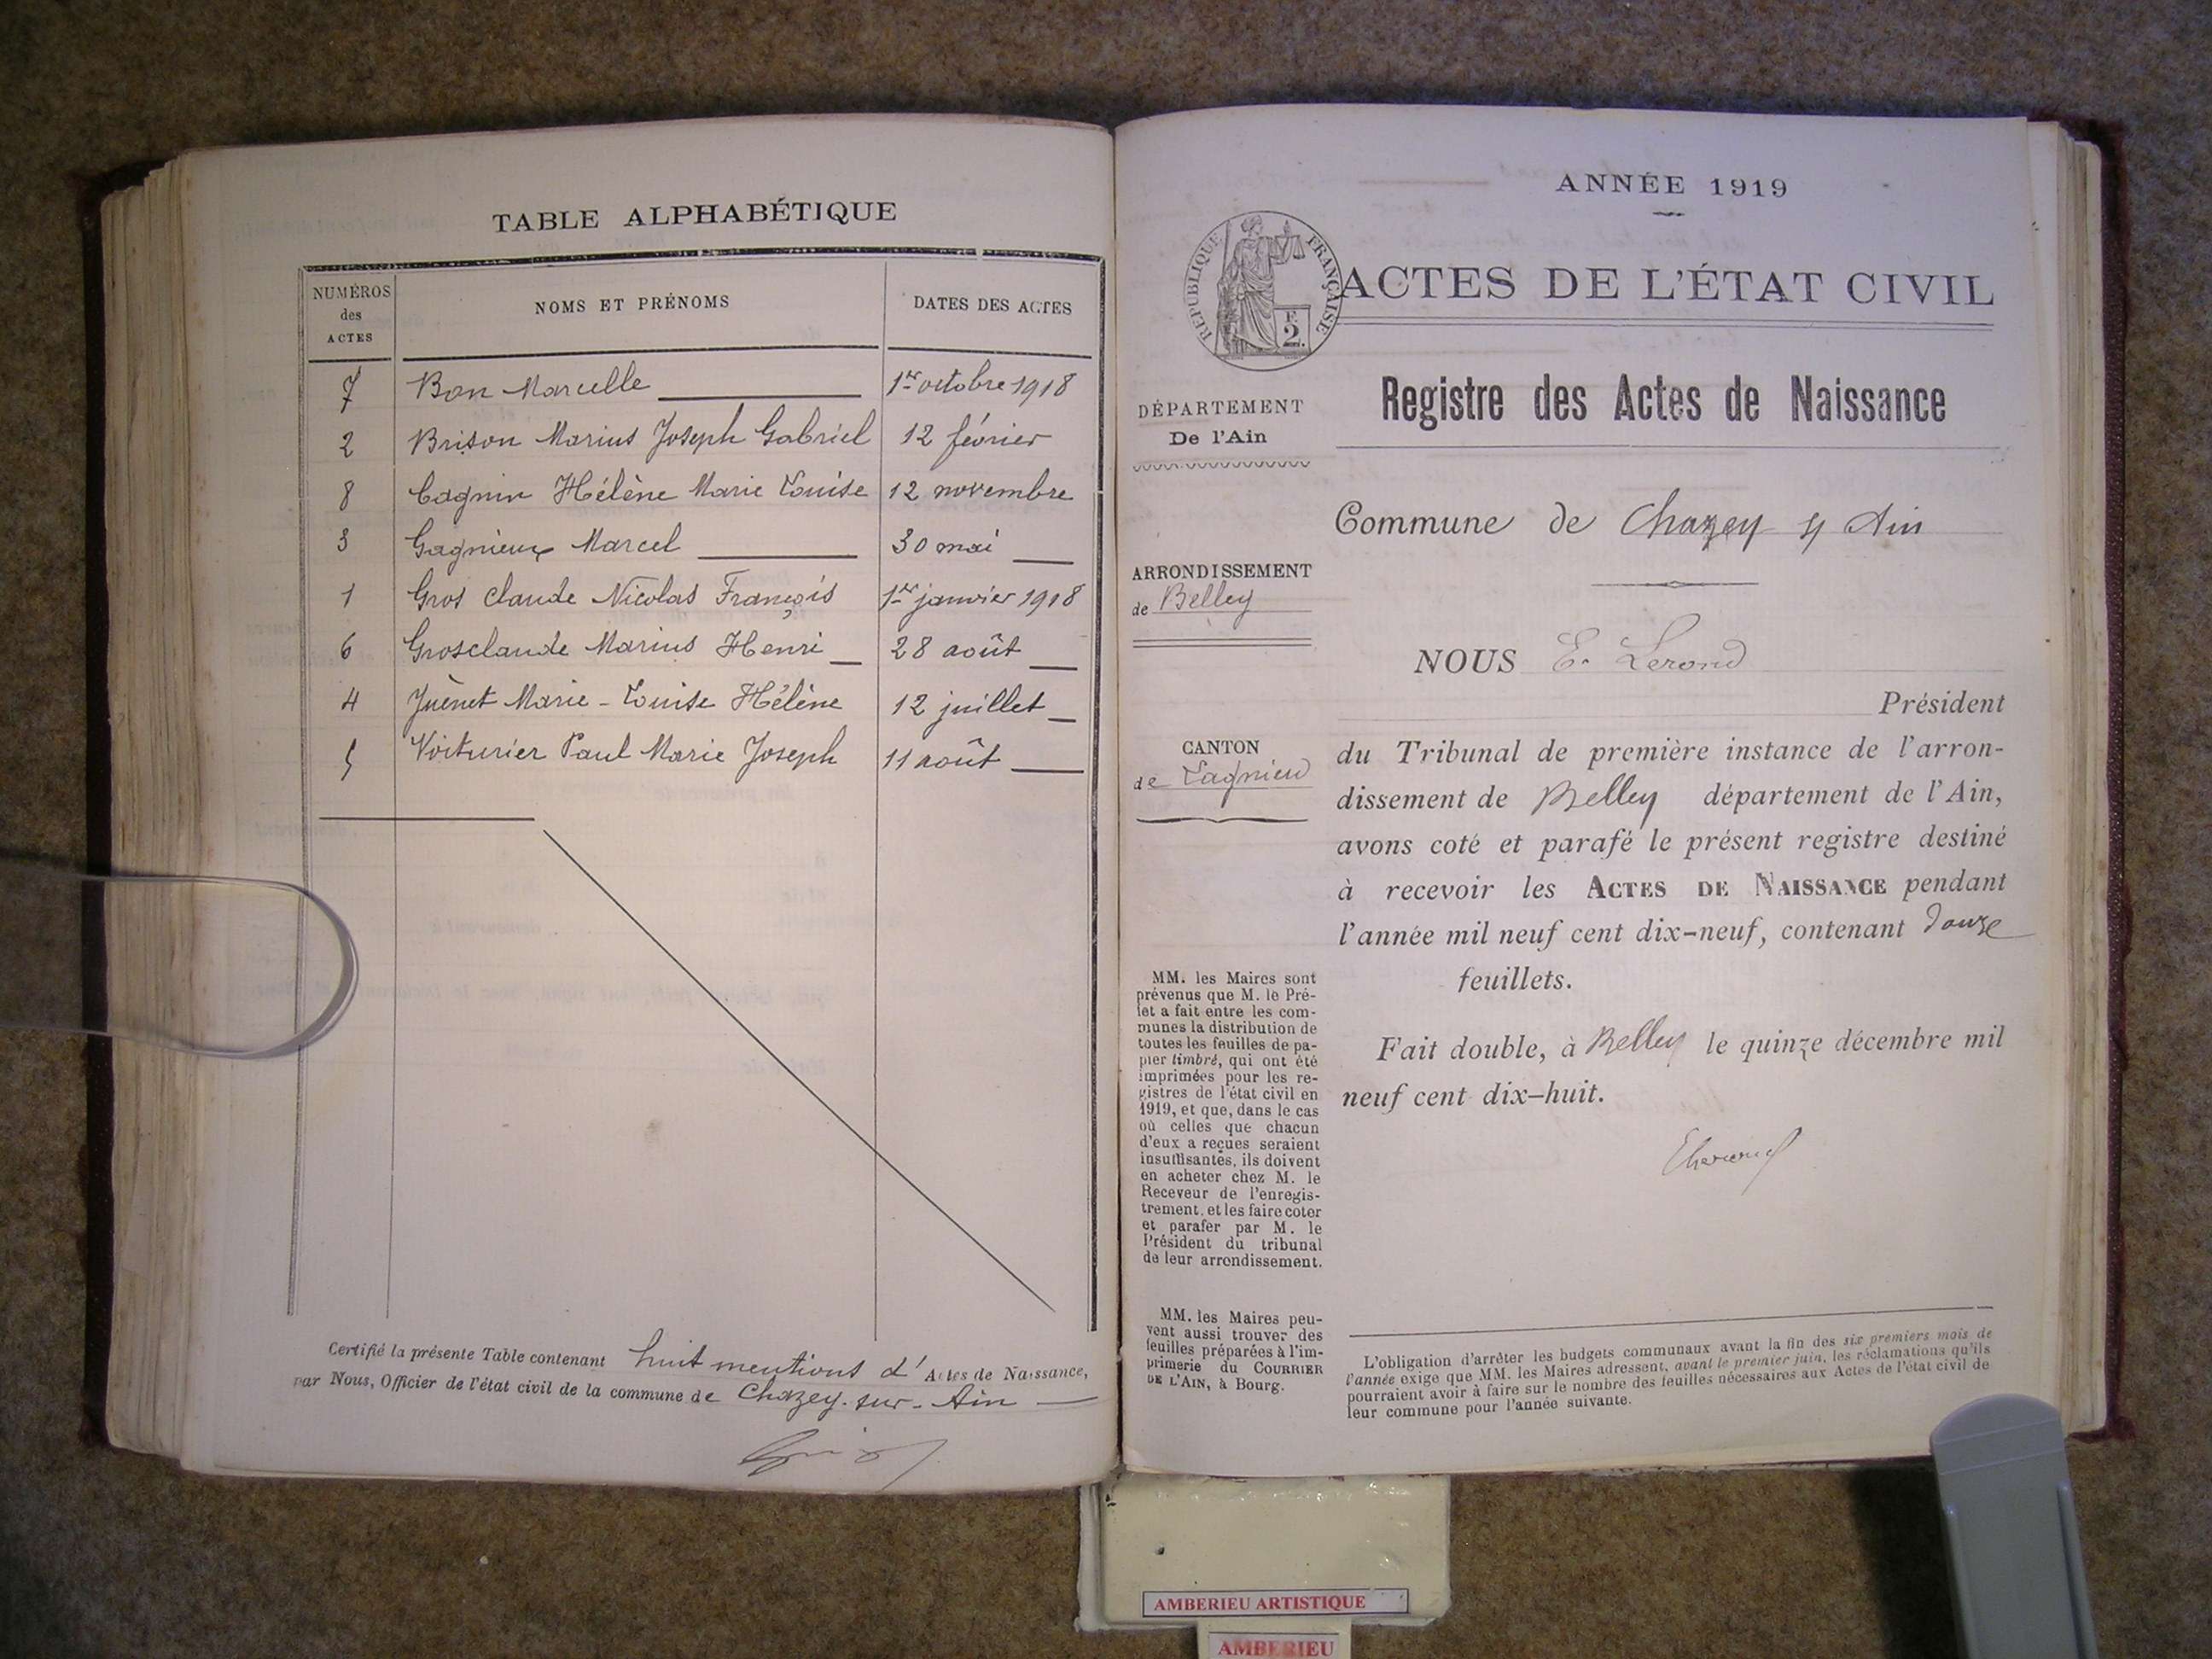 TABLE ALPHABÉTIQUE
NUMÉROS des ACTES NOMS ET PRÉNOMS DATES DES ACTES
7 Bon Marcelle 1er octobre 1918
2 Brison Marius Joseph Gabriel 12 février
8 Cagnin Hélène Marie Louise 12 novembre
3 Gagnieux Marcel 30 mai
1 Gros Claude Nicolas François 1er janvier 1918
6 Grosclaude Marius Henri 28 août
4 Juènet Marie-Louise Hélène 12 juillet
5 Voiturier Paul Marie Joseph 11 août
Certifié la présente Table contenant huit mentions d' Actes de Naissance,
par Nous, Officier de l'état civil de la commune de Chazey-sur-Ain
ANNÉE 1919
RÉPUBLIQUE FRANÇAISE
F. 2
ACTES DE L'ÉTAT CIVIL
Registre des Actes de Naissance
DÉPARTEMENT
De l'Ain
Commune de Chazey s/ Ain
ARRONDISSEMENT
de Belley
NOUS E. Lerond
Président
CANTON
de Lagnieu
du Tribunal de première instance de l'arron-
dissement de Belley département de l'Ain,
avons coté et parafé le présent registre destiné
à recevoir les ACTES DE NAISSANCE pendant
l'année mil neuf cent dix-neuf, contenant douze
feuillets.
Fait double, à Belley le quinze décembre mil
neuf cent dix-huit.
MM. les Maires sont
prévenus que M. le Pré-
fet a fait entre les com-
munes la distribution de
toutes les feuilles de pa-
pier timbré, qui ont été
imprimées pour les re-
gistres de l'état civil en
1919, et que, dans le cas
où celles que chacun
d'eux a reçues seraient
insuffisantes, ils doivent
en acheter chez M. le
Receveur de l'enregis-
trement, et les faire coter
et parafer par M. le
Président du tribunal
de leur arrondissement.
MM. les Maires peu-
vent aussi trouver des
feuilles préparées à l'im-
primerie du COURRIER
DE L'AIN, à Bourg.
L'obligation d'arrêter les budgets communaux avant la fin des six premiers mois de
l'année exige que MM. les Maires adressent, avant le premier juin, les réclamations qu'ils
pourraient avoir à faire sur le nombre des feuilles nécessaires aux Actes de l'état civil de
leur commune pour l'année suivante.
AMBERIEU ARTISTIQUE
AMBERIEU